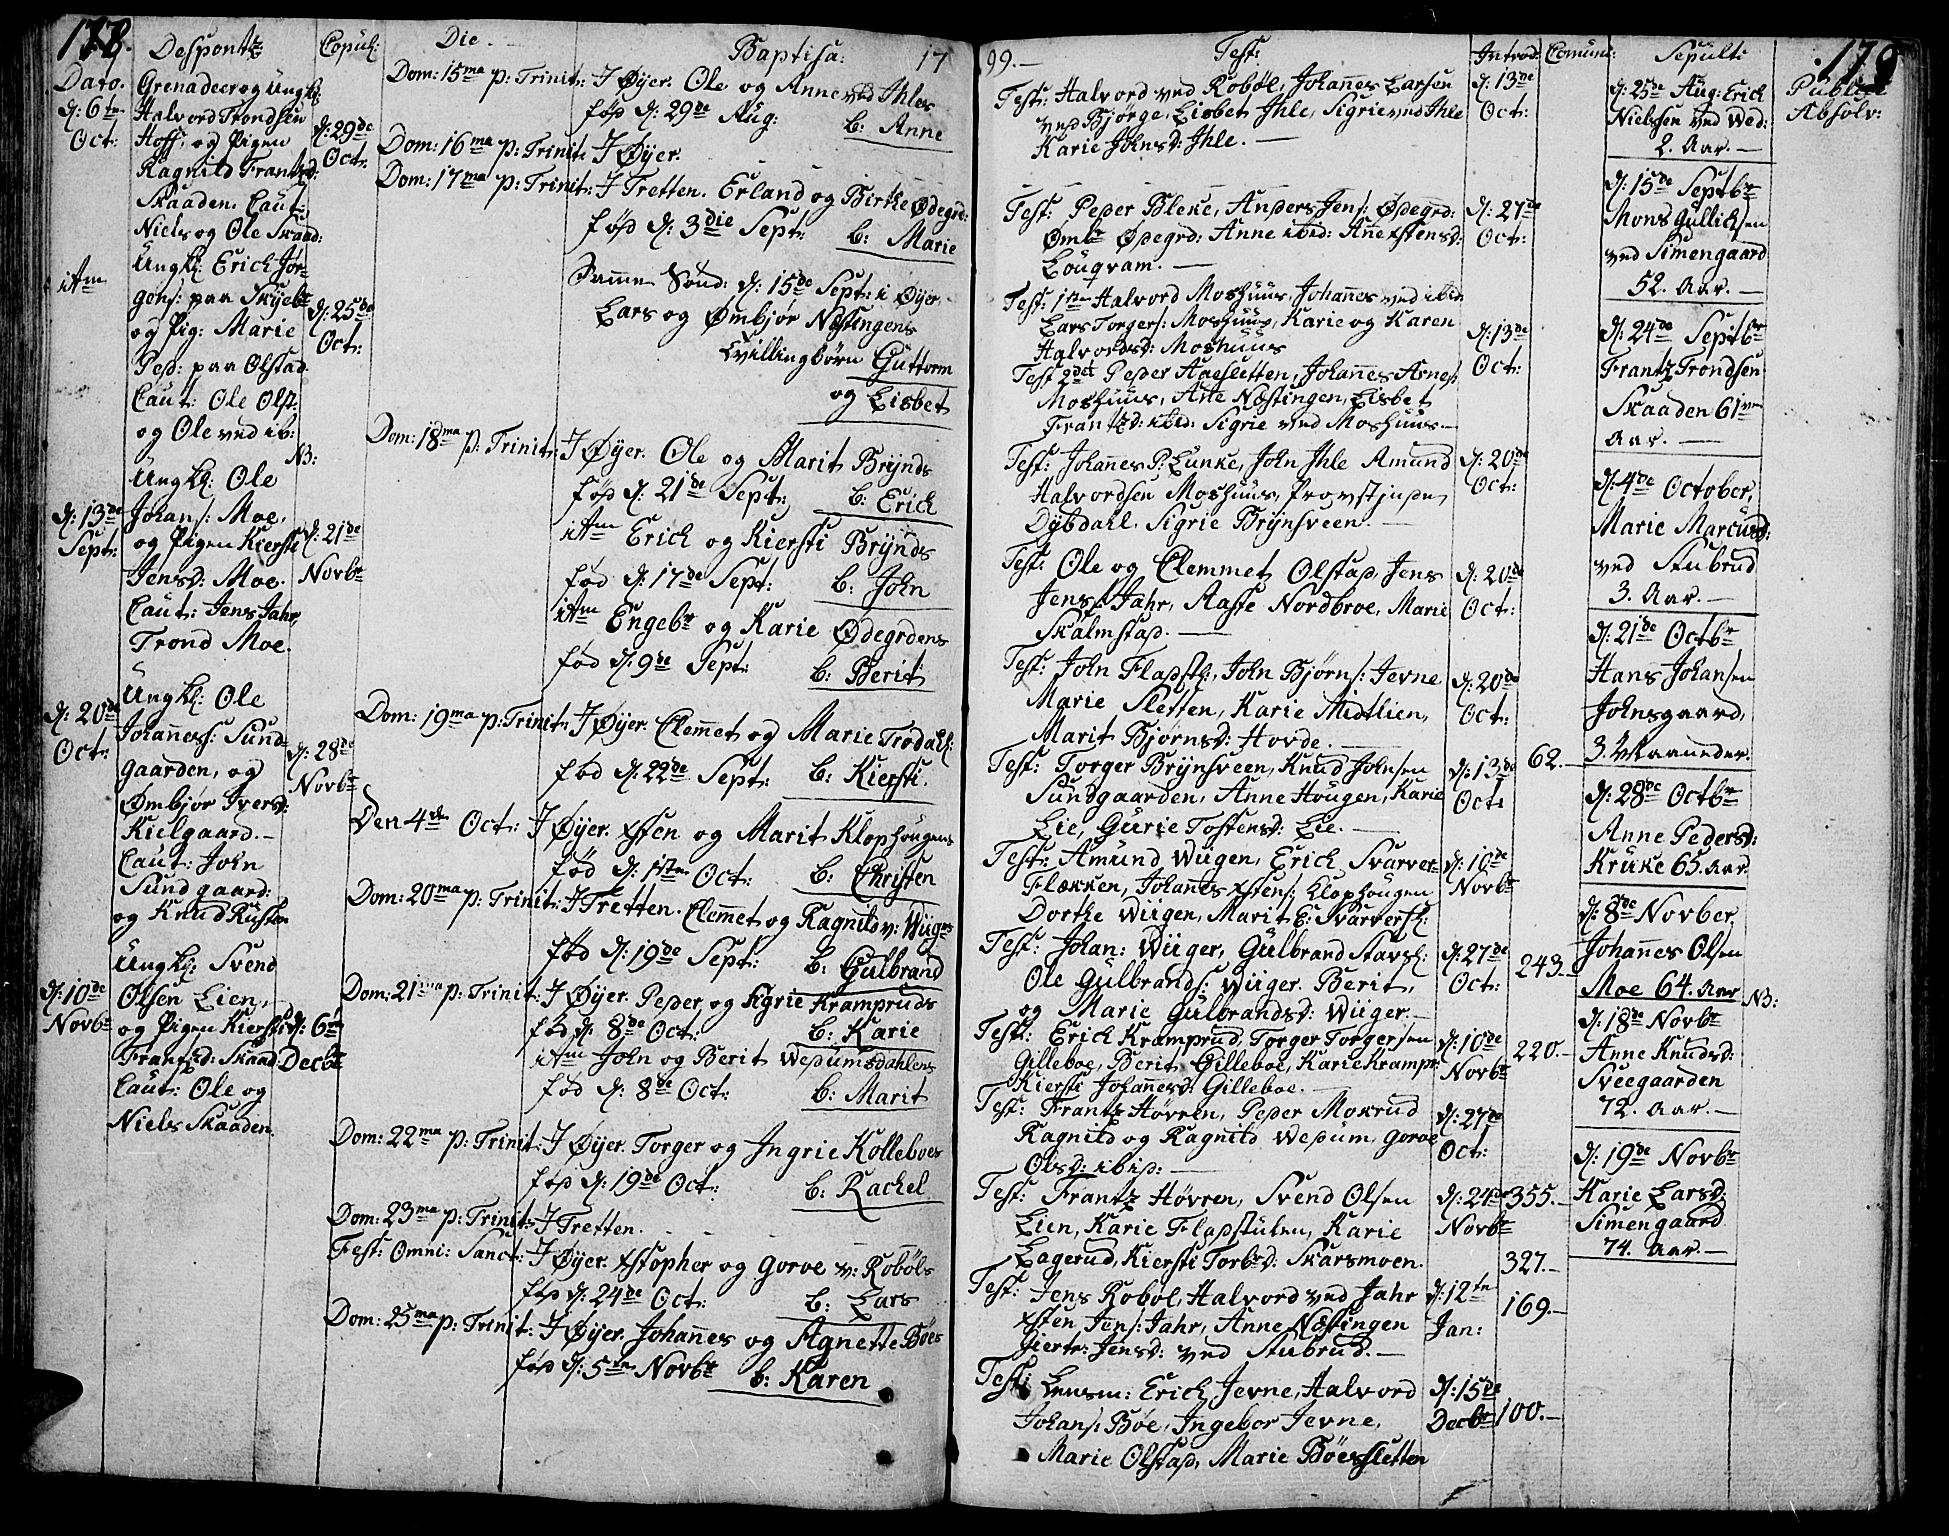 178.
Desponsat:
Copul:
Die
Baptisa:
17
Dato.
d: 6te
Oct:
Grenadeer og Ungk:
Halvord Trondsen
Hoff, og Pigen
Ragnild Frantzd:
Skaaden. Caut:
Niels og Ole Skaad:
d: 29de
Oct:
itm
Ungk: Erich Jør-
gens: paa Skÿebr
og Pig: Marie
Ped: paa Olstad.
Caut: Ole Olst:
og Ole ved ib:
d: 25de
Oct:
NB:
d: 13de
Sept:
Ungk: Ole
Johans: Moe,
og Pigen Kiersti
Jensd: Moe.
Caut: Jens Jahr,
Trond Moe.
d: 21de
Novbr
d: 20de
Oct:
Ungk: Ole
Johanes: Sund-
gaarden, og
Ombjør Ivers:
Kielgaard.
Caut: John
Sundgaard:
og Knud Rusten
d: 28de
Novbr
d: 10de
Novbr
Ungk: Svend
Olsen Lien,
og Pigen Kiersti
Frantzd: Skaad.
Caut: Ole og
Niels Skaaden.
d: 6te
Decbr
Dom: 15ma p: Trinit: I Øÿer. Ole og Anne ved Ihles
fød d: 29de Aug: b: Anne
Dom: 16ma p: Trinit: I Øÿer.
Dom: 17ma p: Trinit: I Tretten. Erland og Birthe Ødegrd:
fød d: 3die Sept: b: Marie
Samme Sønd: d: 15de Sept: i Øÿer
Lars og Ømbjør Næstingens
Tvillingbørn Guttorm
og Lisbet
Dom: 18ma p: Trinit: I Øÿer. Ole og Marit Brÿnds
fød d: 21de Sept: b: Erich
itm Erich og Kiersti Brÿnds
fød d: 17de Sept: b: John
itm Engebr og Karie Ødegrdens
fød d: 9de Sept: b: Berit
Dom: 19ma p: Trinit: I Øÿer. Clemet og Marie Trodahl:
fød d: 22de Sept: b: Kiersti.
Den 4de Oct: I Øÿer. Xsten og Marit Klophougens
fød d: 1ste Oct: b: Christen
Dom: 20ma p: Trinit: I Tretten. Clemet og Ragnild v: Wiigens
fød d: 19de Sept: b: Gulbrand
Dom: 21ma p: Trinit: I Øÿer. Peder og Sigrie Krampruds
fød d: 8de Oct: b: Karie
itm John og Berit Wedumsdahlens
fød d: 8de Oct: b: Marit
Dom: 22ma p: Trinit: I Øÿer. Torger og Ingrie Kolleboes
fød d: 19de Oct: b: Rachel
Dom: 23ma p: Trinit: I Tretten.
Fest: Omni: Sanct: I Øÿer. Xstopher og Gorve v: Robøls
fød d: 24de Oct: b: Lars
Dom: 25ma p: Trinit: I Øÿer. Johanes og Agnette Bøes
fød d: 5te Novbr b: Karen
99.
Test:
Introd:
Comuni:
Sepulti
179
Publice
Absolv:
Test: Halvord ved Robøl, Johanes Larsen
ved Bjørge, Lisbet Ihle, Sigrie ved Ihle
Karie Johnsd: Ihle.
d: 13de
Oct:
Test: Peder Bleke, Anders Jens: Ødegrd:
Ombr Ødegrd: Anne ibid: Ane Xstensd:
Louqvam.
d: 27de
Oct:
Test: 1ste Halvord Moshuus, Johanes ved ibid
Lars Torgers: Moshuus, Karie og Karen
Halvordsd: Moshuus
d: 13de
Oct:
Test 2det Peder Aaesletten, Johanes Arnes:
Moshuus, Ane Næstingen, Lisbet
Frantzd: ibid: Sigrie ved Moshuus
Test: Johanes P: Lunke, John Ihle Amund
Halvordsen Moshuus, Provstinden
Dÿbdahl. Sigrie Brÿnsveen.
d: 20de
Oct:
Test: Ole og Clemmet Olstad, Jens
Jens: Jahr, Aaste Nordbroe, Marie
Skalmstad.
d: 20de
Oct:
Test: John Fladst:, John Bjørns: Jevne
Marie Sletten, Karie Midtlien,
Marit Bjørnsd: Hovde.
d: 20de
Oct:
Test: Torger Brÿnsveen, Knud Johnsen
Sundgaarden, Anne Hougen, Karie
Lie, Gurie Tostensd: Lie.
d: 13de
Oct:
62.
Test: Amund Wiigen, Erich Svarver-
Flækken, Johanes Xstens: Klophougen
Dorthe Wiigen, Marit E: Svarverfl:
d: 10de
Novbr
Test: Johan: Wiiger, Gulbrand Stavsl:
Ole Gulbrands: Wiiger. Berit,
og Marie Gulbrandsd: Wiiger.
d: 27de
Oct:
243.
Test: Erich Kramprud, Torger Torgersen
Gilleboe, Berit Gilleboe, Karie Krampr:
Kiersti Johanesd: Gilleboe.
d: 10de
Novbr
220.
Test: Frantz Høvren, Peder Mokrud
Ragnild og Ragnild Wedum, Gorve
Olsd: ibid:
d: 27de
Oct:
Test: Frantz Høvren, Svend Olsen
Lien, Karie Fladstulen, Karie
Lagerud, Kiersti Torbrd: Skarsmoen.
d: 24de
Novbr
355.
327.
Test: Jens Robøl, Halvord ved Jahr
Xsten Jens: Jahr, Anne Næstingen
Gierte: Jensd: ved Stubrud.
d: 12te
Jan:
169.
Test: Lensm: Erich Jevne, Halvord
Johans: Bøe, Ingebor Jevne,
Marie Olstad, Marie Bøesletten
d: 15de
Decbr
100.
d: 25de Aug: Erich
Nielssen ved Wed:
2. Aar.
d: 15de Septbr
Mons Gullichsen
ved Simengaard
52. Aar.
d: 24de Septbr
Frantz Trondsen
Skaaden 61
Aar.
d: 4de October,
Marie Marcusd:
ved Stubrud
3. Aar.
d: 21de Octbr
Hans Johansen
Johnsgaard,
3. Maaneder.
d: 28de Octbr
Anne Pedersd:
Kruke 65. Aar
d: 8de Novber,
Johanes Olsen
Moe 64. Aar
NB:
d: 18de Novbr
Anne Knudsd:
Sveegaarden
72. Aar.
d: 19de Novbr
Karie Larsd:
Simengaard
74. Aar.